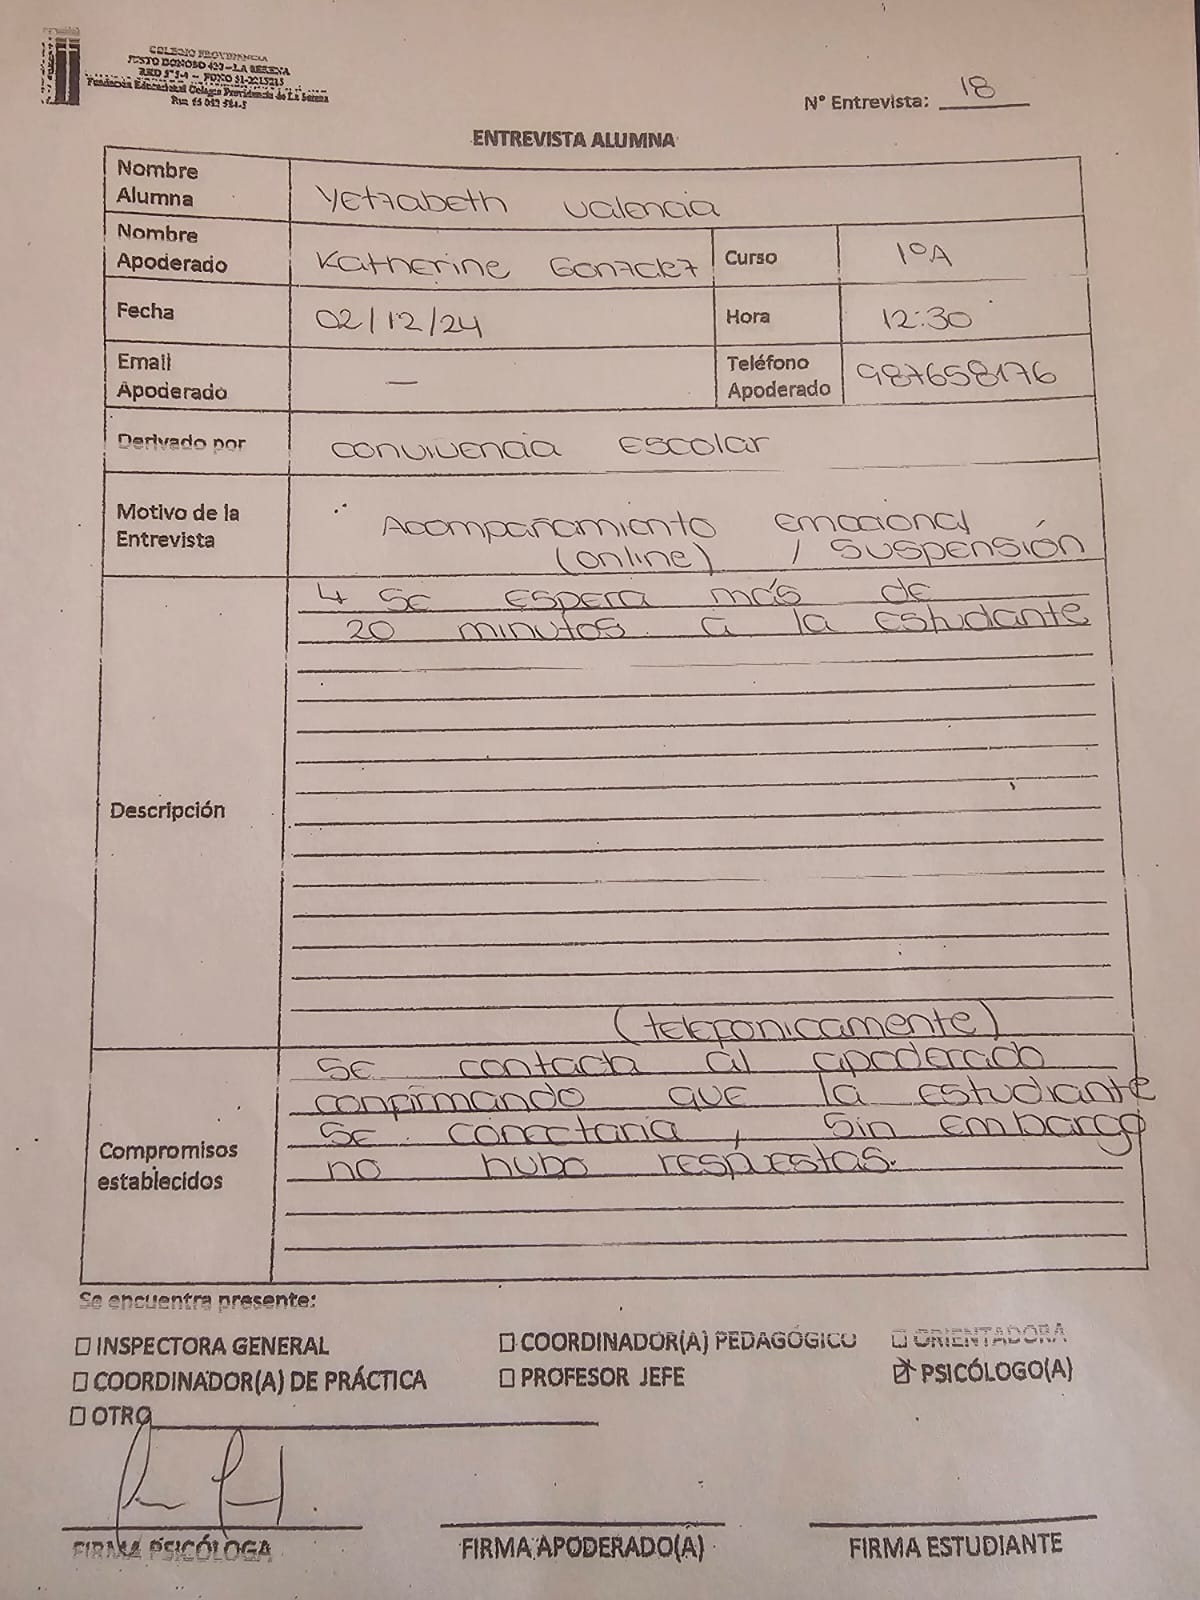 COLEGIO PROVIDENCIA
JUSTO DONOSO 420 – LA SERENA
RBD 575-4 – FONO 51-2215215
Fundación Educacional Colegio Providencia de La Serena
Rut 65 092 584-5
N° Entrevista: 18
ENTREVISTA ALUMNA
Nombre Alumna Yetzabeth Valencia
Nombre Apoderado Katherine Gonzalez Curso 1°A
Fecha 02/12/24 Hora 12:30
Email Apoderado — Teléfono Apoderado 987658176
Derivado por convivencia escolar
Motivo de la Entrevista Acompañamiento emocional
(online) / suspensión
Descripción
↳ Se espera más de
20 minutos a la estudiante
(telefonicamente)
Compromisos establecidos
Se contacta al apoderado
confirmando que la estudiante
se conectaria, sin embargo
no hubo respuestas.
Se encuentra presente:
☐ INSPECTORA GENERAL ☐ COORDINADOR(A) PEDAGÓGICO ☐ ORIENTADORA
☐ COORDINADOR(A) DE PRÁCTICA ☐ PROFESOR JEFE ☒ PSICÓLOGO(A)
☐ OTRO
FIRMA PSICÓLOGA FIRMA APODERADO(A) FIRMA ESTUDIANTE